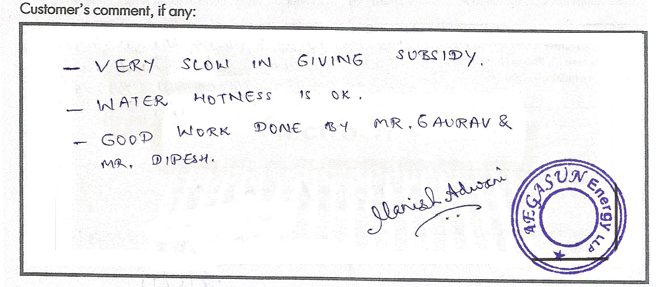 Customer's comment, if any:
- VERY SLOW IN GIVING SUBSIDY.
- WATER HOTNESS IS OK.
- GOOD WORK DONE BY MR. GAURAV &
MR. DIPESH.
Manish Adwani
AEGASUN Energy LLP